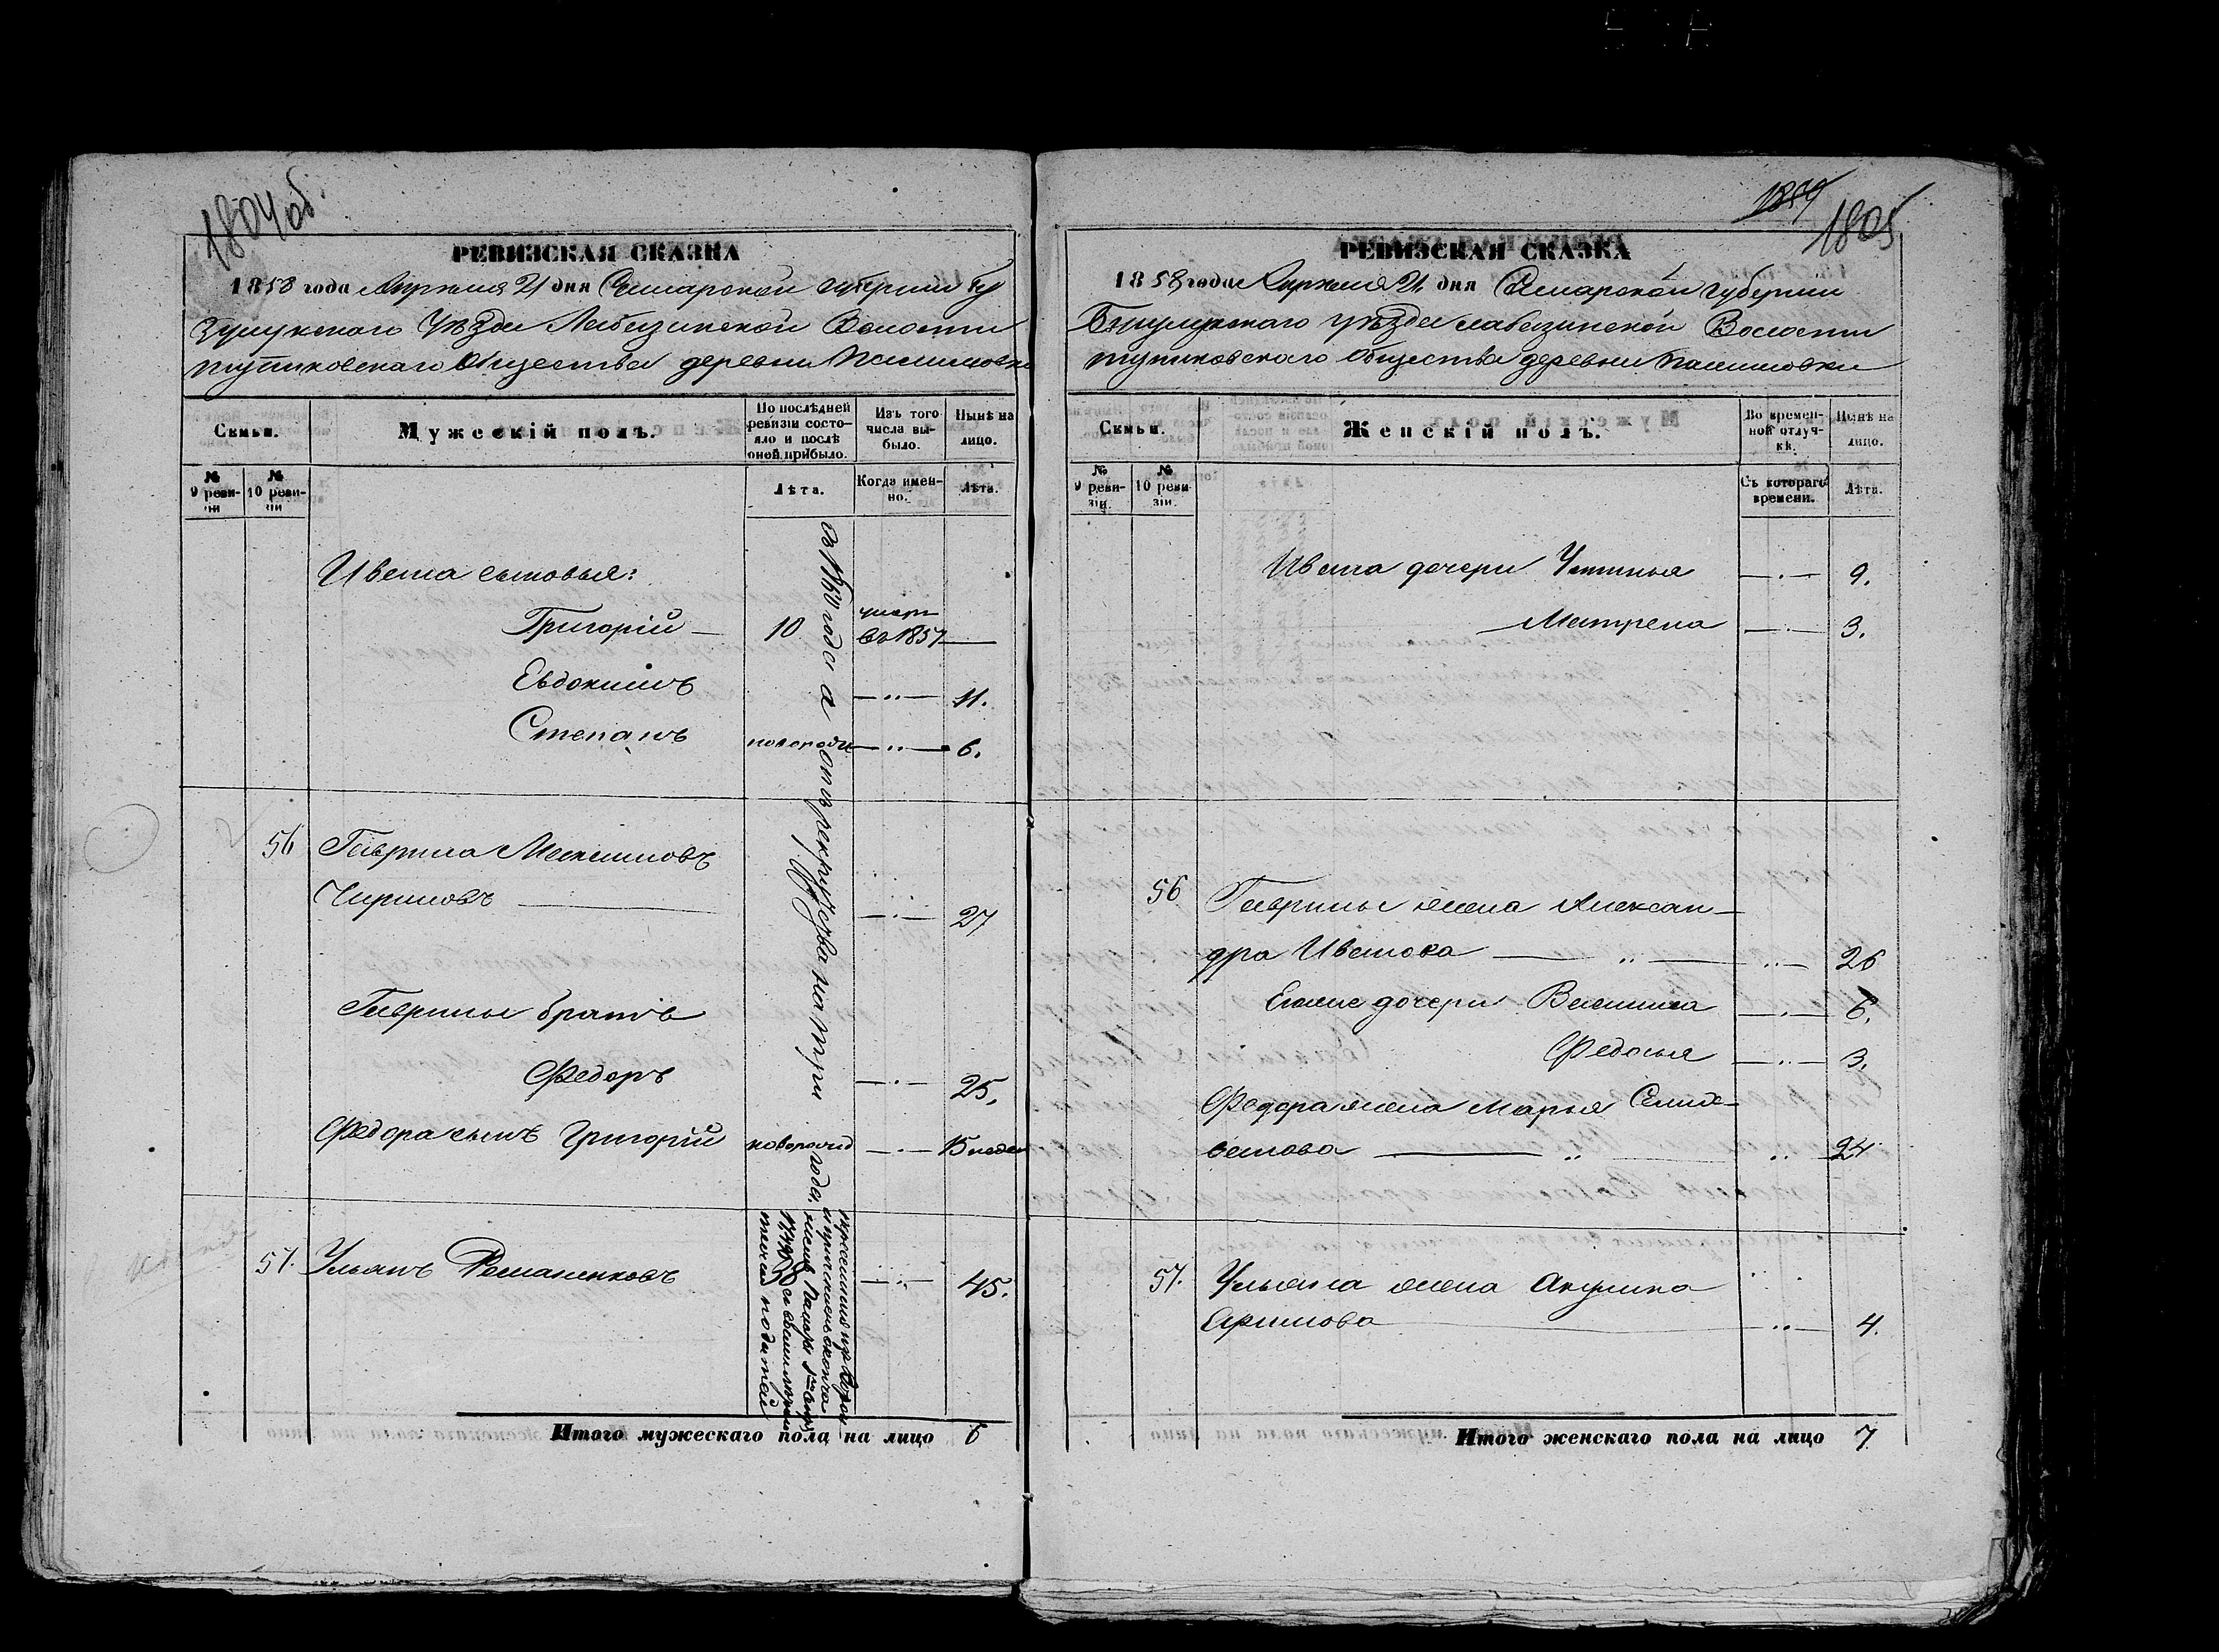 1804об.
РЕВИЗСКАЯ СКАЗКА
1858 года Апреля 21 дня Самарской губернии Бу
зулукскаго Уѣзда Лабазинской Волости
Тупиковскаго Общества деревни
Семьи.
Мужескій полъ.
По послѣдней ревизіи состояло и послѣ оной прибыло.
Изъ того числа выбыло.
Нынѣ на лицо.
№ 9 ревизіи
№ 10 ревизіи
Лѣта.
Когда именно.
Лѣта.
Ивана сыновья:
Григорій — 10 умеръ въ 1857 —
Евдокимъ — 11.
Степанъ новорожд — 6.
56 Гаврила Максимовъ
Чириковъ — 27
Гаврилы братъ
Федоръ — 25.
Федора сынъ Григорій новорожд — 15 недел
57. Ульянъ Романенковъ — 45.
въ года а отъ рекрутства на три года.
Итого мужескаго пола на лицо 6
1805
РЕВИЗСКАЯ СКАЗКА
1858 года Апреля 21 дня Самарской губернии
Бузулукскаго уѣзда Лабазинской Волости
Тупиковскаго Общества деревни
Семьи.
Женскій полъ.
Во временной отлучкѣ.
Нынѣ на лицо.
№ 9 ревизіи.
№ 10 ревизіи.
Съ котораго времени.
Лѣта.
Ивана дочери Устинья — 9.
Матрена — 3.
56 Гаврилы жена Алексан-
дра Иванова — 26
Ево дочери Василиса — 6.
Федосья — 3.
Федора жена Марья Сели-
ванова — 24
57. Ульяна жена Акулина
Ефимова — 4.
Итого женскаго пола на лицо 7